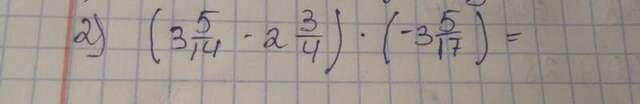 2) (3 5/14 - 2 3/4) · (-3 5/17) =